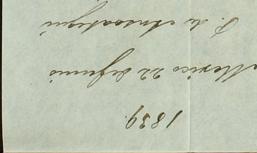 1839.
Mexico 22 de Junio
P. de Ansoategui